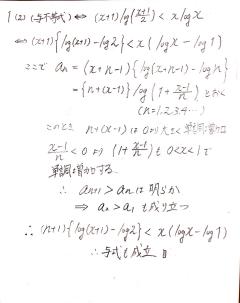 1 (2) (与不等式) ⇔ (x+1) log(x+1/2) < x log x
⇔ (x+1){log(x+1)-log2} < x (log x - log 1)
ここで an = (x+n-1){log(x+n-1)-log n}
= {n+(x-1)} log (1+ x-1/n) とおく
(n=1,2,3,4…)
このとき n+(x-1) は 0より大きく 単調増加
x-1/n < 0 より (1+ x-1/n) も 0<x<1 で
単調増加する.
∴ an+1 > an は 明らか
⇒ a2 > a1 も成り立つ
∴ (x+1){log(x+1)-log2} < x (log x - log 1)
∴ 与式も成立